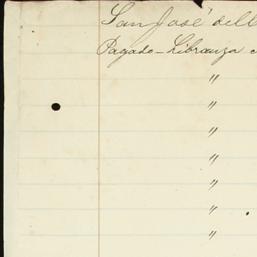 San José del
Pagado - Libranza
"
"
"
"
"
"
"